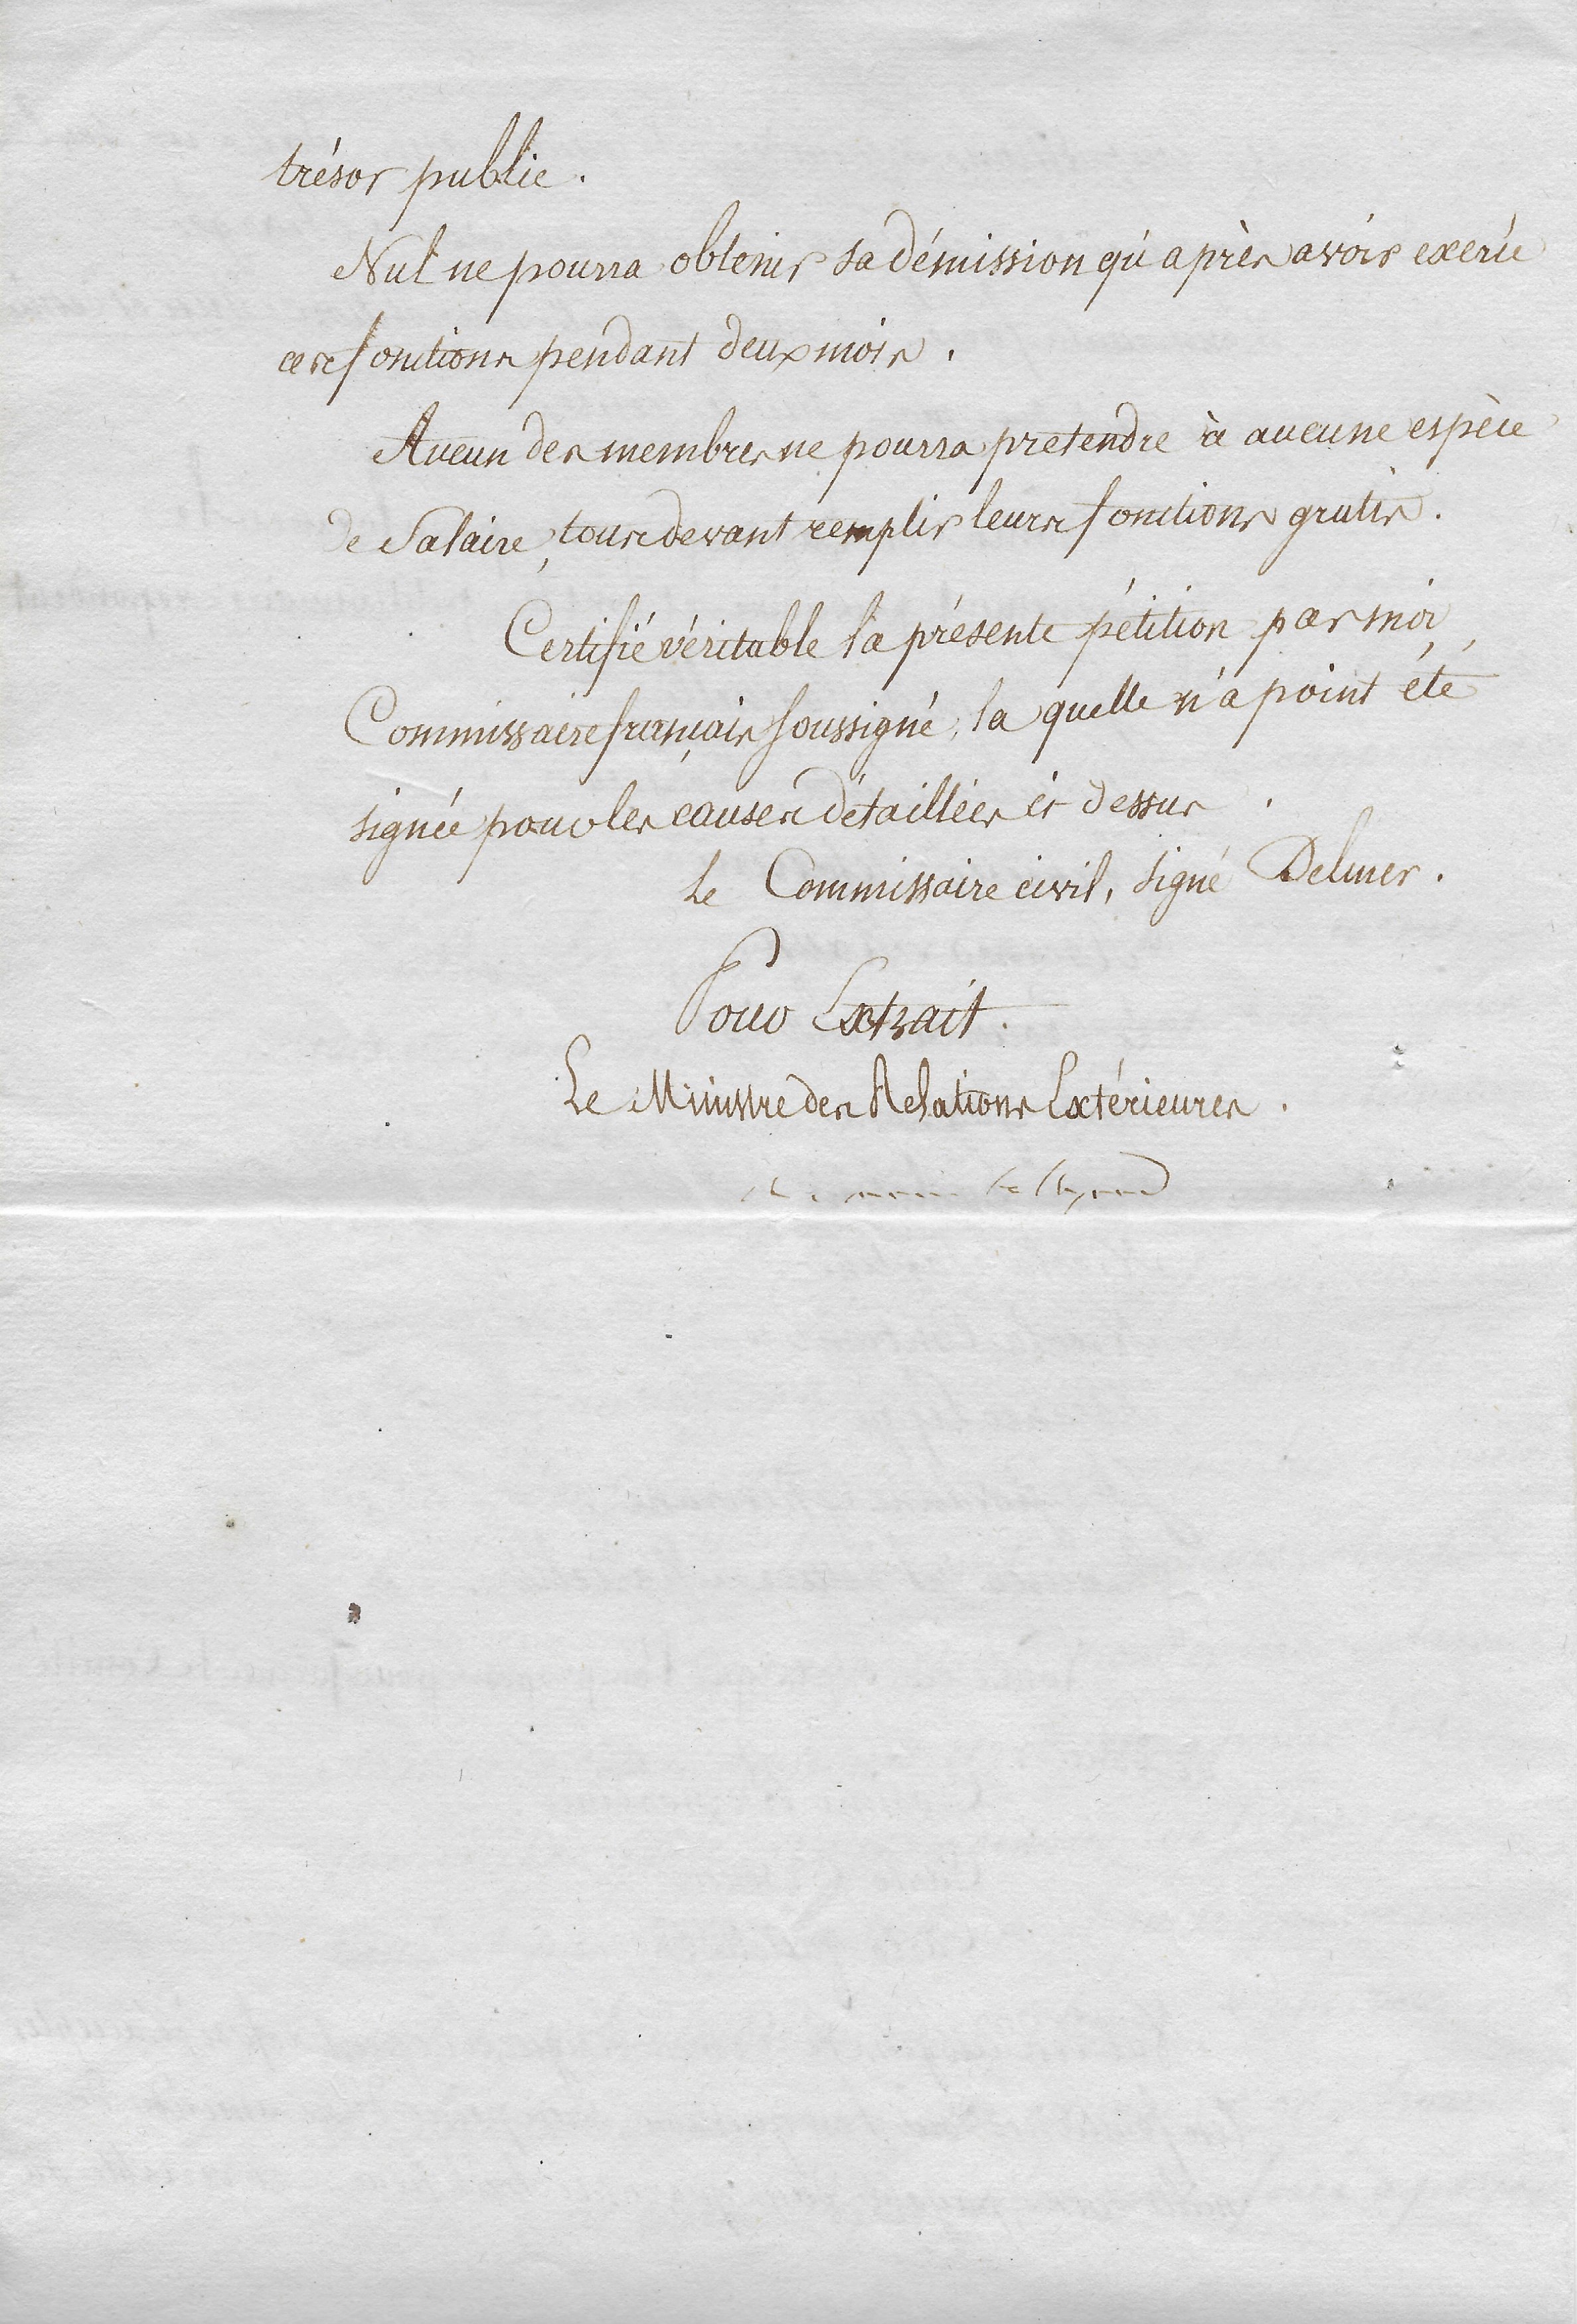 trésor public.
Nul ne pourra obtenir sa démission qu'après avoir exercé
ces fonctions pendant deux mois.
Aucun des membres ne pourra pretendre à aucune espèce
de Salaire, tous devant remplir leurs fonctions gratis.
Certifié véritable la présente pétition par moi,
Commissaire français soussigné, la quelle n'a point été
signée pour les causes détaillées ci dessus.
Le Commissaire civil, signé Delmer.
Pour Extrait.
Le Ministre des Relations Extérieures.